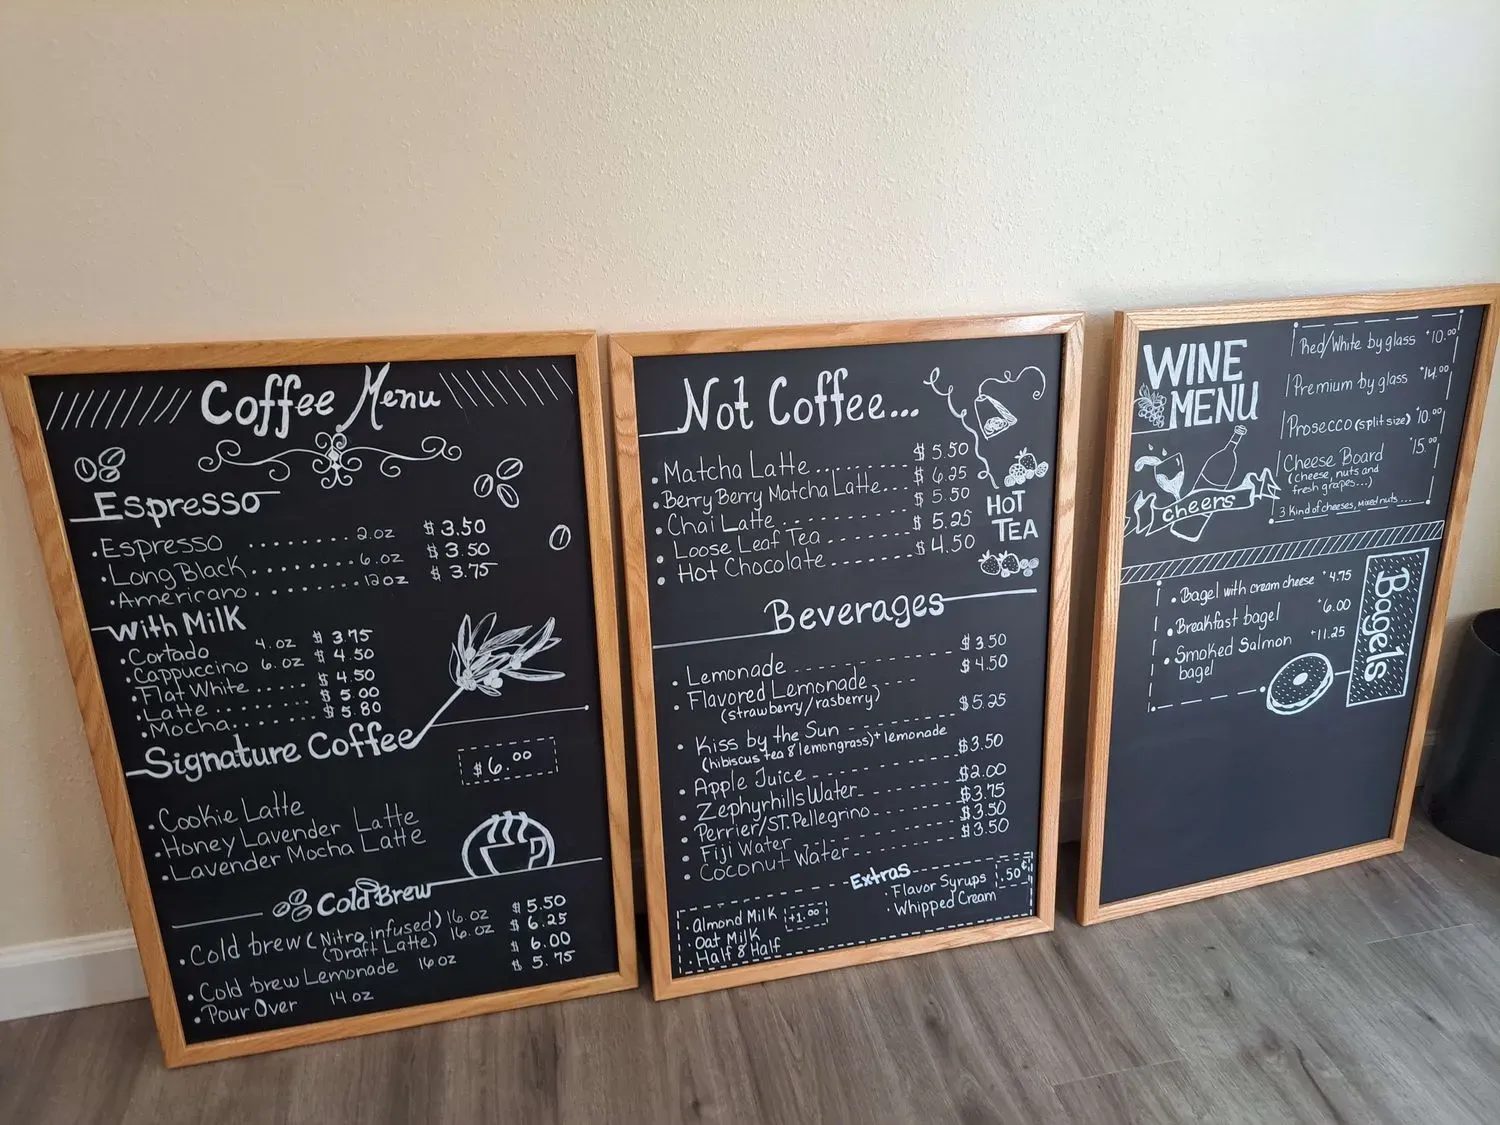 Coffee Menu
Espresso
• Espresso ........ 2oz $3.50
• Long Black ........ 6.oz $3.50
• Americano ........ 12oz $3.75
With Milk
• Cortado 4.oz $3.75
• Cappuccino 6.oz $4.50
• Flat White ...... $4.50
• Latte ........ $5.00
• Mocha ........ $5.80
Signature Coffee
$6.00
• Cookie Latte
• Honey Lavender Latte
• Lavender Mocha Latte
Cold Brew
• Cold brew (Nitro infused) 16.oz $5.50
(Draft Latte) 16.oz $6.25
• Cold brew Lemonade 16oz $6.00
• Pour Over 14.oz $5.75
Not Coffee...
• Matcha Latte ........ $5.50
• Berry Berry Matcha Latte... $6.25
• Chai Latte ........ $5.50
• Loose Leaf Tea ........ $5.25
• Hot Chocolate ........ $4.50
HOT
TEA
Beverages
• Lemonade -------- $3.50
• Flavored Lemonade ---- $4.50
(strawberry/rasberry)
• Kiss by the Sun -------- $5.25
(hibiscus tea & lemongrass)+ lemonade
• Apple Juice -------- $3.50
• Zephyrhills Water -------- $2.00
• Perrier/ST. Pellegrino -------- $3.75
• Fiji Water -------- $3.50
• Coconut Water -------- $3.50
Extras
• Almond Milk +1.00
• Oat Milk
• Half & Half
• Flavor Syrups .50¢
• Whipped Cream
WINE
MENU
cheers
Red/White by glass $10.00
Premium by glass $14.00
Prosecco (split size) $10.00
Cheese Board $15.00
(cheese, nuts and
fresh grapes...)
3 Kind of cheeses, mixed nuts ...
• Bagel with cream cheese $4.75
• Breakfast bagel $6.00
• Smoked Salmon $11.25
bagel
Bagels